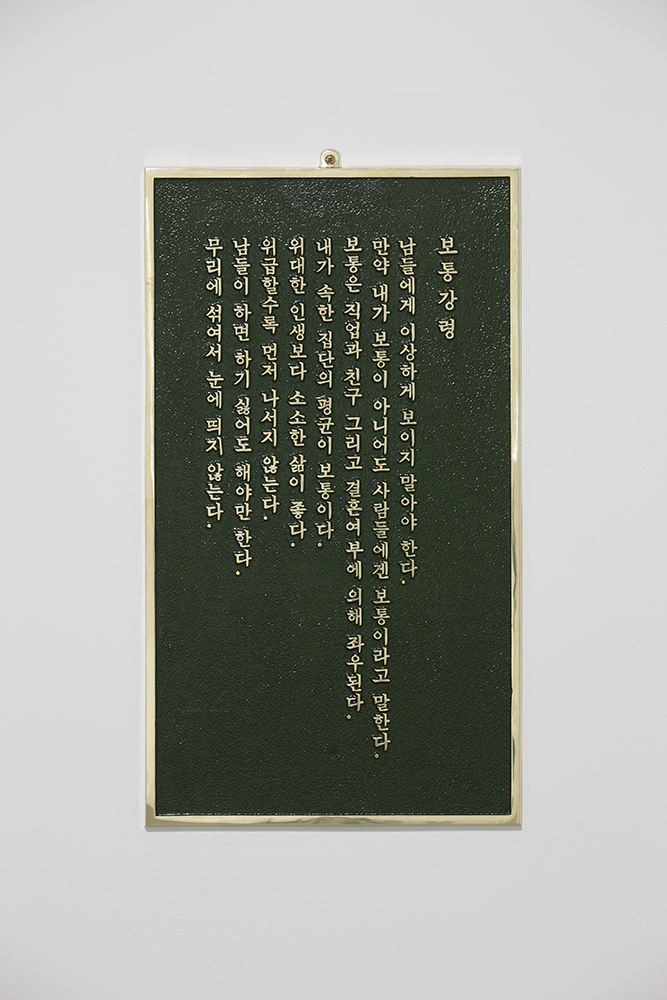 보통강령
남들에게 이상하게 보이지 말아야 한다.
만약 내가 보통이 아니어도 사람들에겐 보통이라고 말한다.
보통은 직업과 친구 그리고 결혼여부에 의해 좌우된다.
내가 속한 집단의 평균이 보통이다.
위대한 인생보다 소소한 삶이 좋다.
위급할수록 먼저 나서지 않는다.
남들이 하면 하기 싫어도 해야만 한다.
무리에 섞여서 눈에 띄지 않는다.